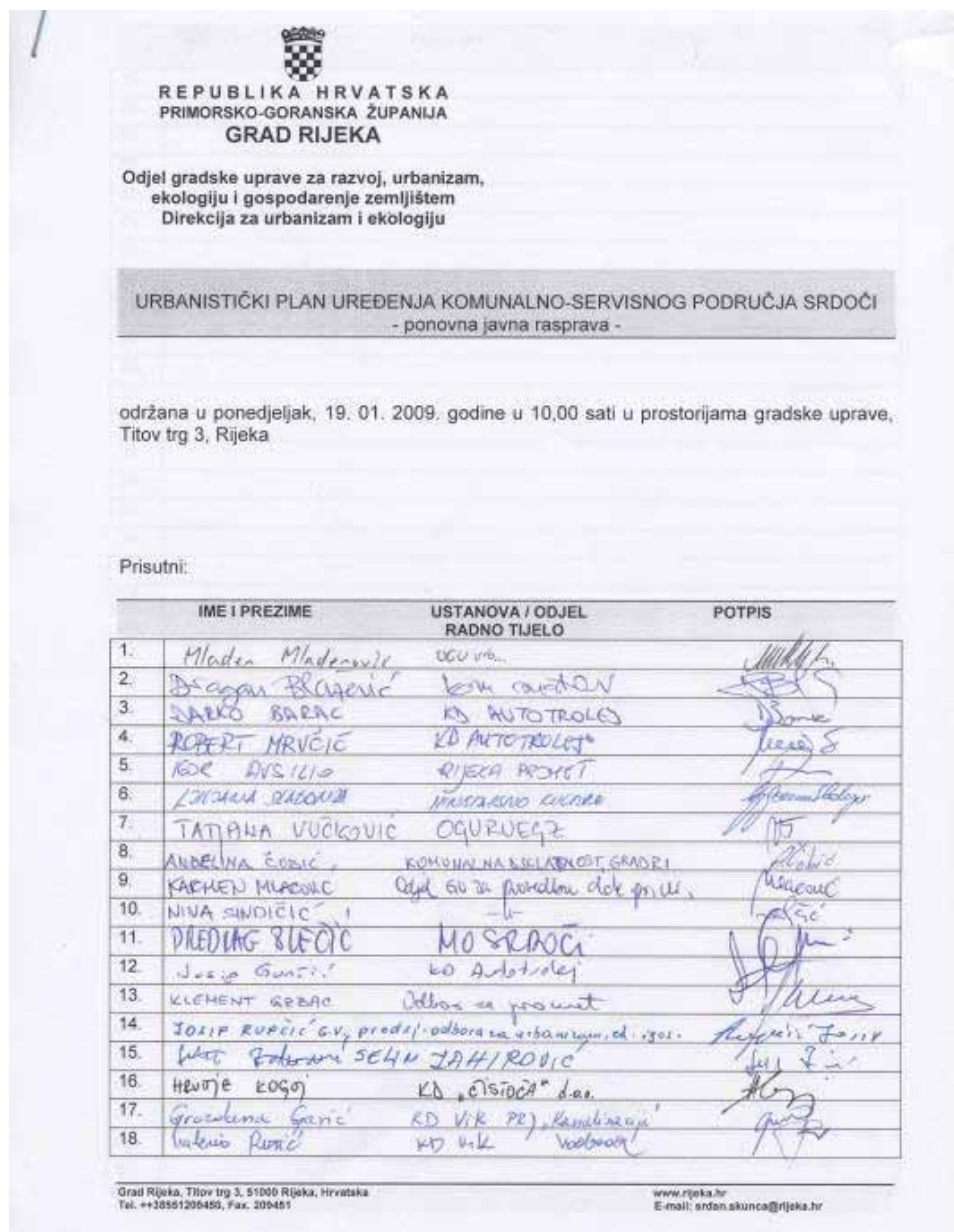 REPUBLIKA HRVATSKA
PRIMORSKO-GORANSKA ŽUPANIJA
GRAD RIJEKA
Odjel gradske uprave za razvoj, urbanizam,
ekologiju i gospodarenje zemljištem
Direkcija za urbanizam i ekologiju
URBANISTIČKI PLAN UREĐENJA KOMUNALNO-SERVISNOG PODRUČJA SRDOČI
- ponovna javna rasprava -
održana u ponedjeljak, 19. 01. 2009. godine u 10,00 sati u prostorijama gradske uprave,
Titov trg 3, Rijeka
Prisutni:
IME I PREZIME USTANOVA / ODJEL POTPIS
RADNO TIJELO
1. Mladen Mladenović
2. Dragan Blažević
3. DARKO BARAC KD AUTOTROLEJ
4. ROBERT MRVČIĆ KD AUTOTROLEJ
5. IGOR AVSILIO RIJEKA PROMET
6. MINISTARSTVO KULTURE
7. TATJANA VUČKOVIĆ OGURUEGZ
8. ANĐELINA ČOBIĆ KOMUNALNA DJELATNOST, GRAD RI
9. KARMEN Odjel GU za provedbu dok
10. NINA SINDIČIĆ -II-
11. PREDRAG MO SRDOČI
12. Josip KD Autotrolej
13. KLEMENT GRBAC Odbor za promet
14. JOSIP RUPČIĆ G.V., predsj. odbora za urbanizam,
15. SELIM ZAHIROVIC
16. HRVOJE KOGOJ KD "ČISTOĆA" d.o.o.
17. Grozdana Garić KD ViK PRJ Kanalizacija
18. KD ViK Vodovod
Grad Rijeka, Titov trg 3, 51000 Rijeka, Hrvatska www.rijeka.hr
Tel. ++38551209450, Fax. 209451 E-mail: srdan.skunca@rijeka.hr